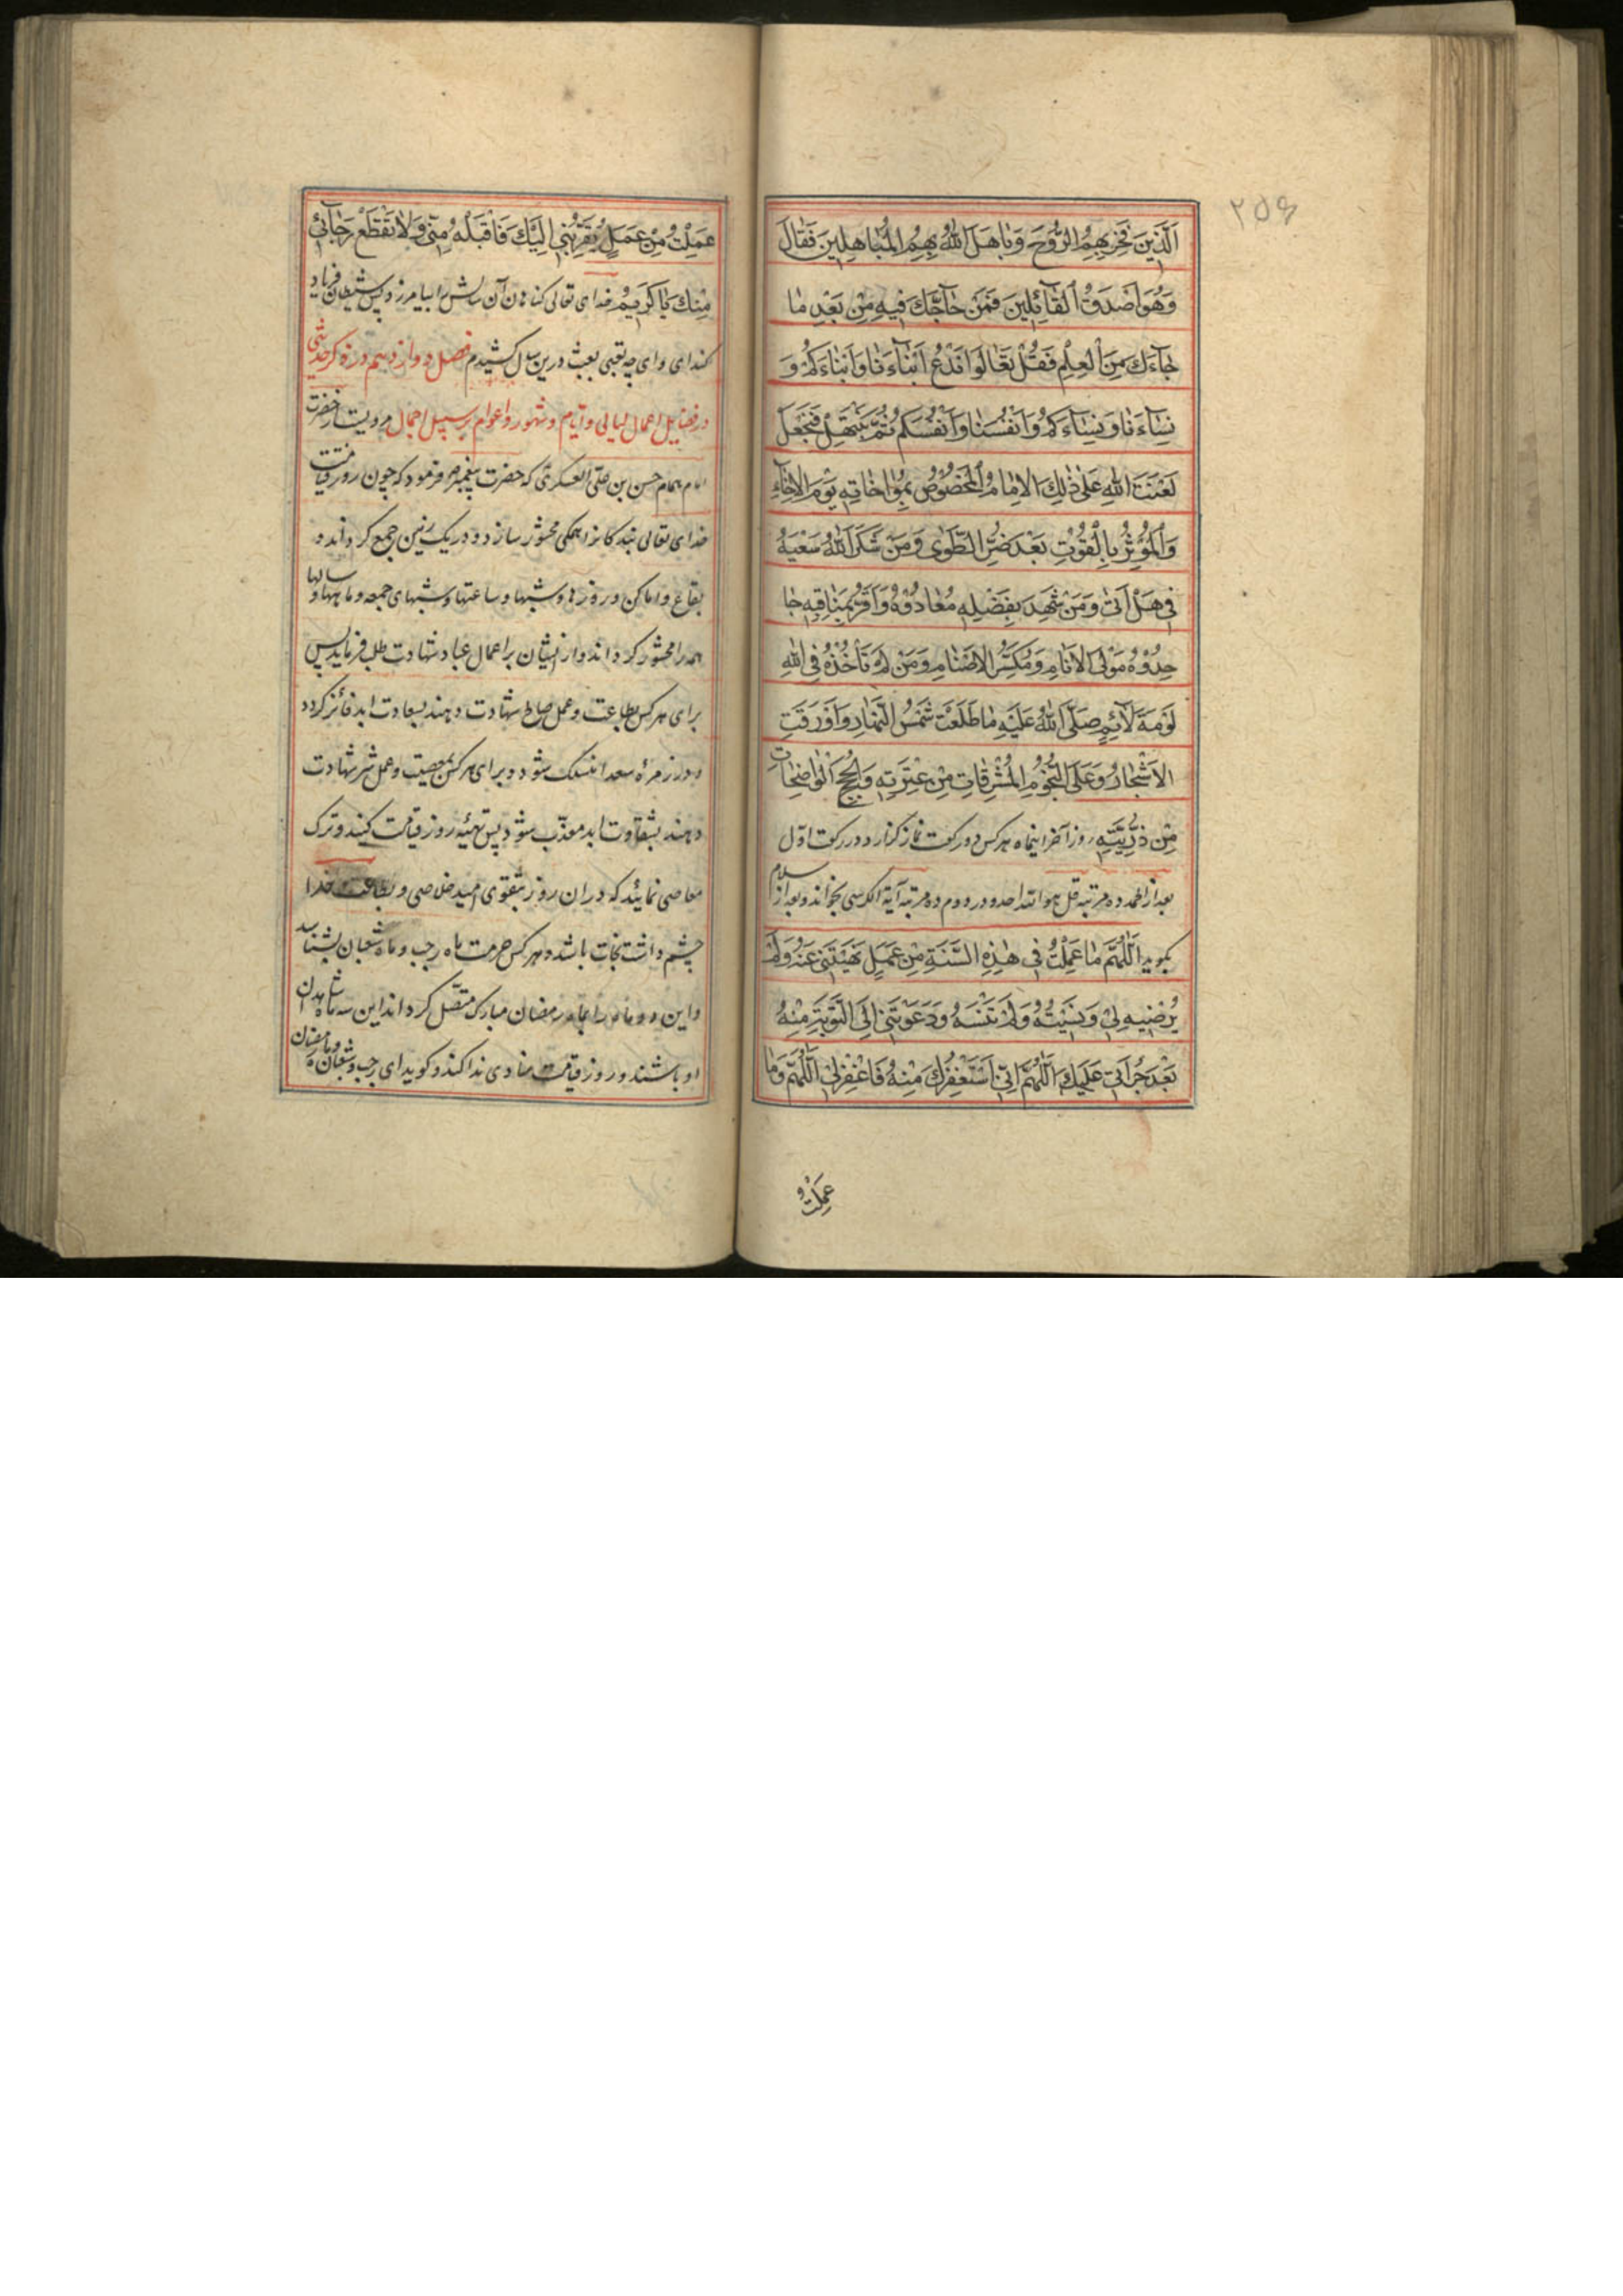 ۲۵۶
اَلَّذينَ فَخَرَ بِهِمُ الرُّوحَ وَبٰاهَلَ اللّٰهُ بِهِمُ الْمُبٰاهِلينَ فَقٰالَ
وَهُوَ اَصْدَقُ الْقٰائِلينَ فَمَنْ حٰاجَّكَ فيهِ مِنْ بَعْدِ مٰا
جٰاءَكَ مِنَ الْعِلْمِ فَقُلْ تَعٰالَوْا نَدْعُ اَبْنٰاءَنٰا وَاَبْنٰاءَكُمْ وَ
نِسٰاءَنٰا وَنِسٰاءَكُمْ وَاَنْفُسَنٰا وَاَنْفُسَكُمْ ثُمَّ نَبْتَهِلْ فَنَجْعَلْ
لَعْنَتَ اللّٰهِ عَلىٰ ذٰلِكَ الاِمٰامُ الْمَخْصُوصُ بِمُوٰاخٰاتِهِ يَوْمَ الاِخٰاءِ
وَالْمُؤْثِرُ بِالْقُوْتِ بَعْدَ ضُرِّ الطَّوىٰ وَمَنْ شَكَرَ اللّٰهُ سَعْيَهُ
فى هَلْ اَتىٰ وَمَنْ شَهِدَ بِفَضْلِهِ مُعٰادُوْهُ وَاَقَرَّ بِمَنٰاقِبِهِ جٰا
حِدُوْهُ مَوْلَى الاَنٰامِ وَمُكَسِّرُ الاَصْنٰامِ وَمَنْ لَمْ تَأْخُذْهُ فِى اللّٰهِ
لَوْمَةَ لَآئِمٍ صَلَّى اللّٰهُ عَلَيْهِ مٰا طَلَعَتْ شَمْسُ النَّهٰارِ وَاَوْرَقَتِ
الاَشْجٰارُ وَعَلَى النُّجُومِ الْمُشْرِقٰاتِ مِنْ عِتْرَتِهِ وَالْحُجَجِ الْوٰاضِحٰاتِ
مِنْ ذُرِّيَّتِهِ روز آخر اینماه هر کس دو رکعت نماز گذارد در رکعت اول
بعد از الحمد ده مرتبه قل هو الله احد و در دوم ده مرتبه آیة الکرسی بخواند و بعد از سلام
بگوید اَللّٰهُمَّ مٰا عَمِلْتُ فى هٰذِهِ السَّنَةِ مِنْ عَمَلٍ نَهَيْتَنى عَنْهُ وَلَمْ
يُرْضِيهِ لى وَنَسِيْتُهُ وَلَمْ تَنْسَهُ وَدَعَوْتَنى اِلَى التَّوْبَةِ مِنْهُ
بَعْدَ جُرْاَتى عَلَيْكَ اَللّٰهُمَّ اِنّى اَسْتَغْفِرُكَ مِنْهُ فَاغْفِرْلى اَللّٰهُمَّ وَمٰا
عَمِلْتُ
عَمِلْتُ مِنْ عَمَلٍ يُقَرِّبُنى اِلَيْكَ فَاقْبَلْهُ مِنّى وَلاٰ تَقْطَعْ رَجٰائى
مِنْكَ يٰا كَرِيمُ خدای تعالی گناهان آن سالش را بیامرزد پس شیطان فریاد
کند ای وای چه تعبی بعبث درین سال کشیدم فصل دوازدهم در ذکر حدیثی
در فضایل اعمال لیالی و ایام و شهور و اعوام بر سبیل اجمال مرویست از حضرت
امام همام حسن بن علی العسکری که حضرت پیغمبر فرمود که چون روز قیامت
خدای تعالی بندگانرا همگی محشور سازد و در یک زمین جمع گرداند و
بقاع و اماکن و روزها و شبها و ساعتها و شبهای جمعه و ماهها و سالها
همه را محشور گرداند و از ایشان بر اعمال عباد شهادت طلب فرماید پس
برای هر کس بطاعت و عمل صالح شهادت دهند بسعادت ابد فائز گردد
و در زمرهٔ سعدا منسلک شود و برای هر کس بمعصیت و عمل شر شهادت
دهند بشقاوت ابد معذب شود پس تهیه روز قیامت کنید و ترک
معاصی نمائید که در آن روز بتقوی امید خلاصی و بطاعت خدا
چشم داشت نجات باشد و هر کس حرمت ماه رجب و ماه شعبان بشناسد
و این دو ماه را بماه رمضان مبارک متصل گرداند این سه ماه شاهدان
او باشند و روز قیامت منادی ندا کند و گوید ای رجب و شعبان و ماه رمضان